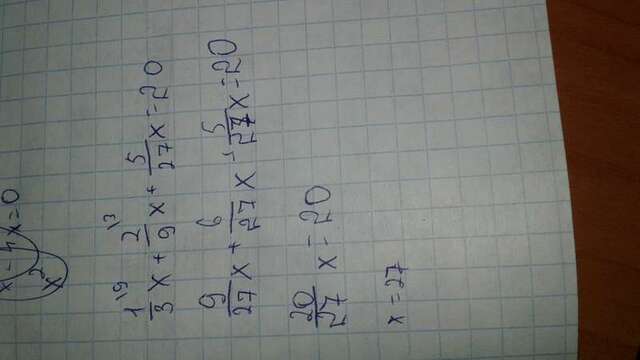 x² - 4x = 0
1\9/3 x + 2\3/9 x + 5/27 x = 20
9/27 x + 6/27 x + 5/27 x = 20
20/27 x = 20
x = 27